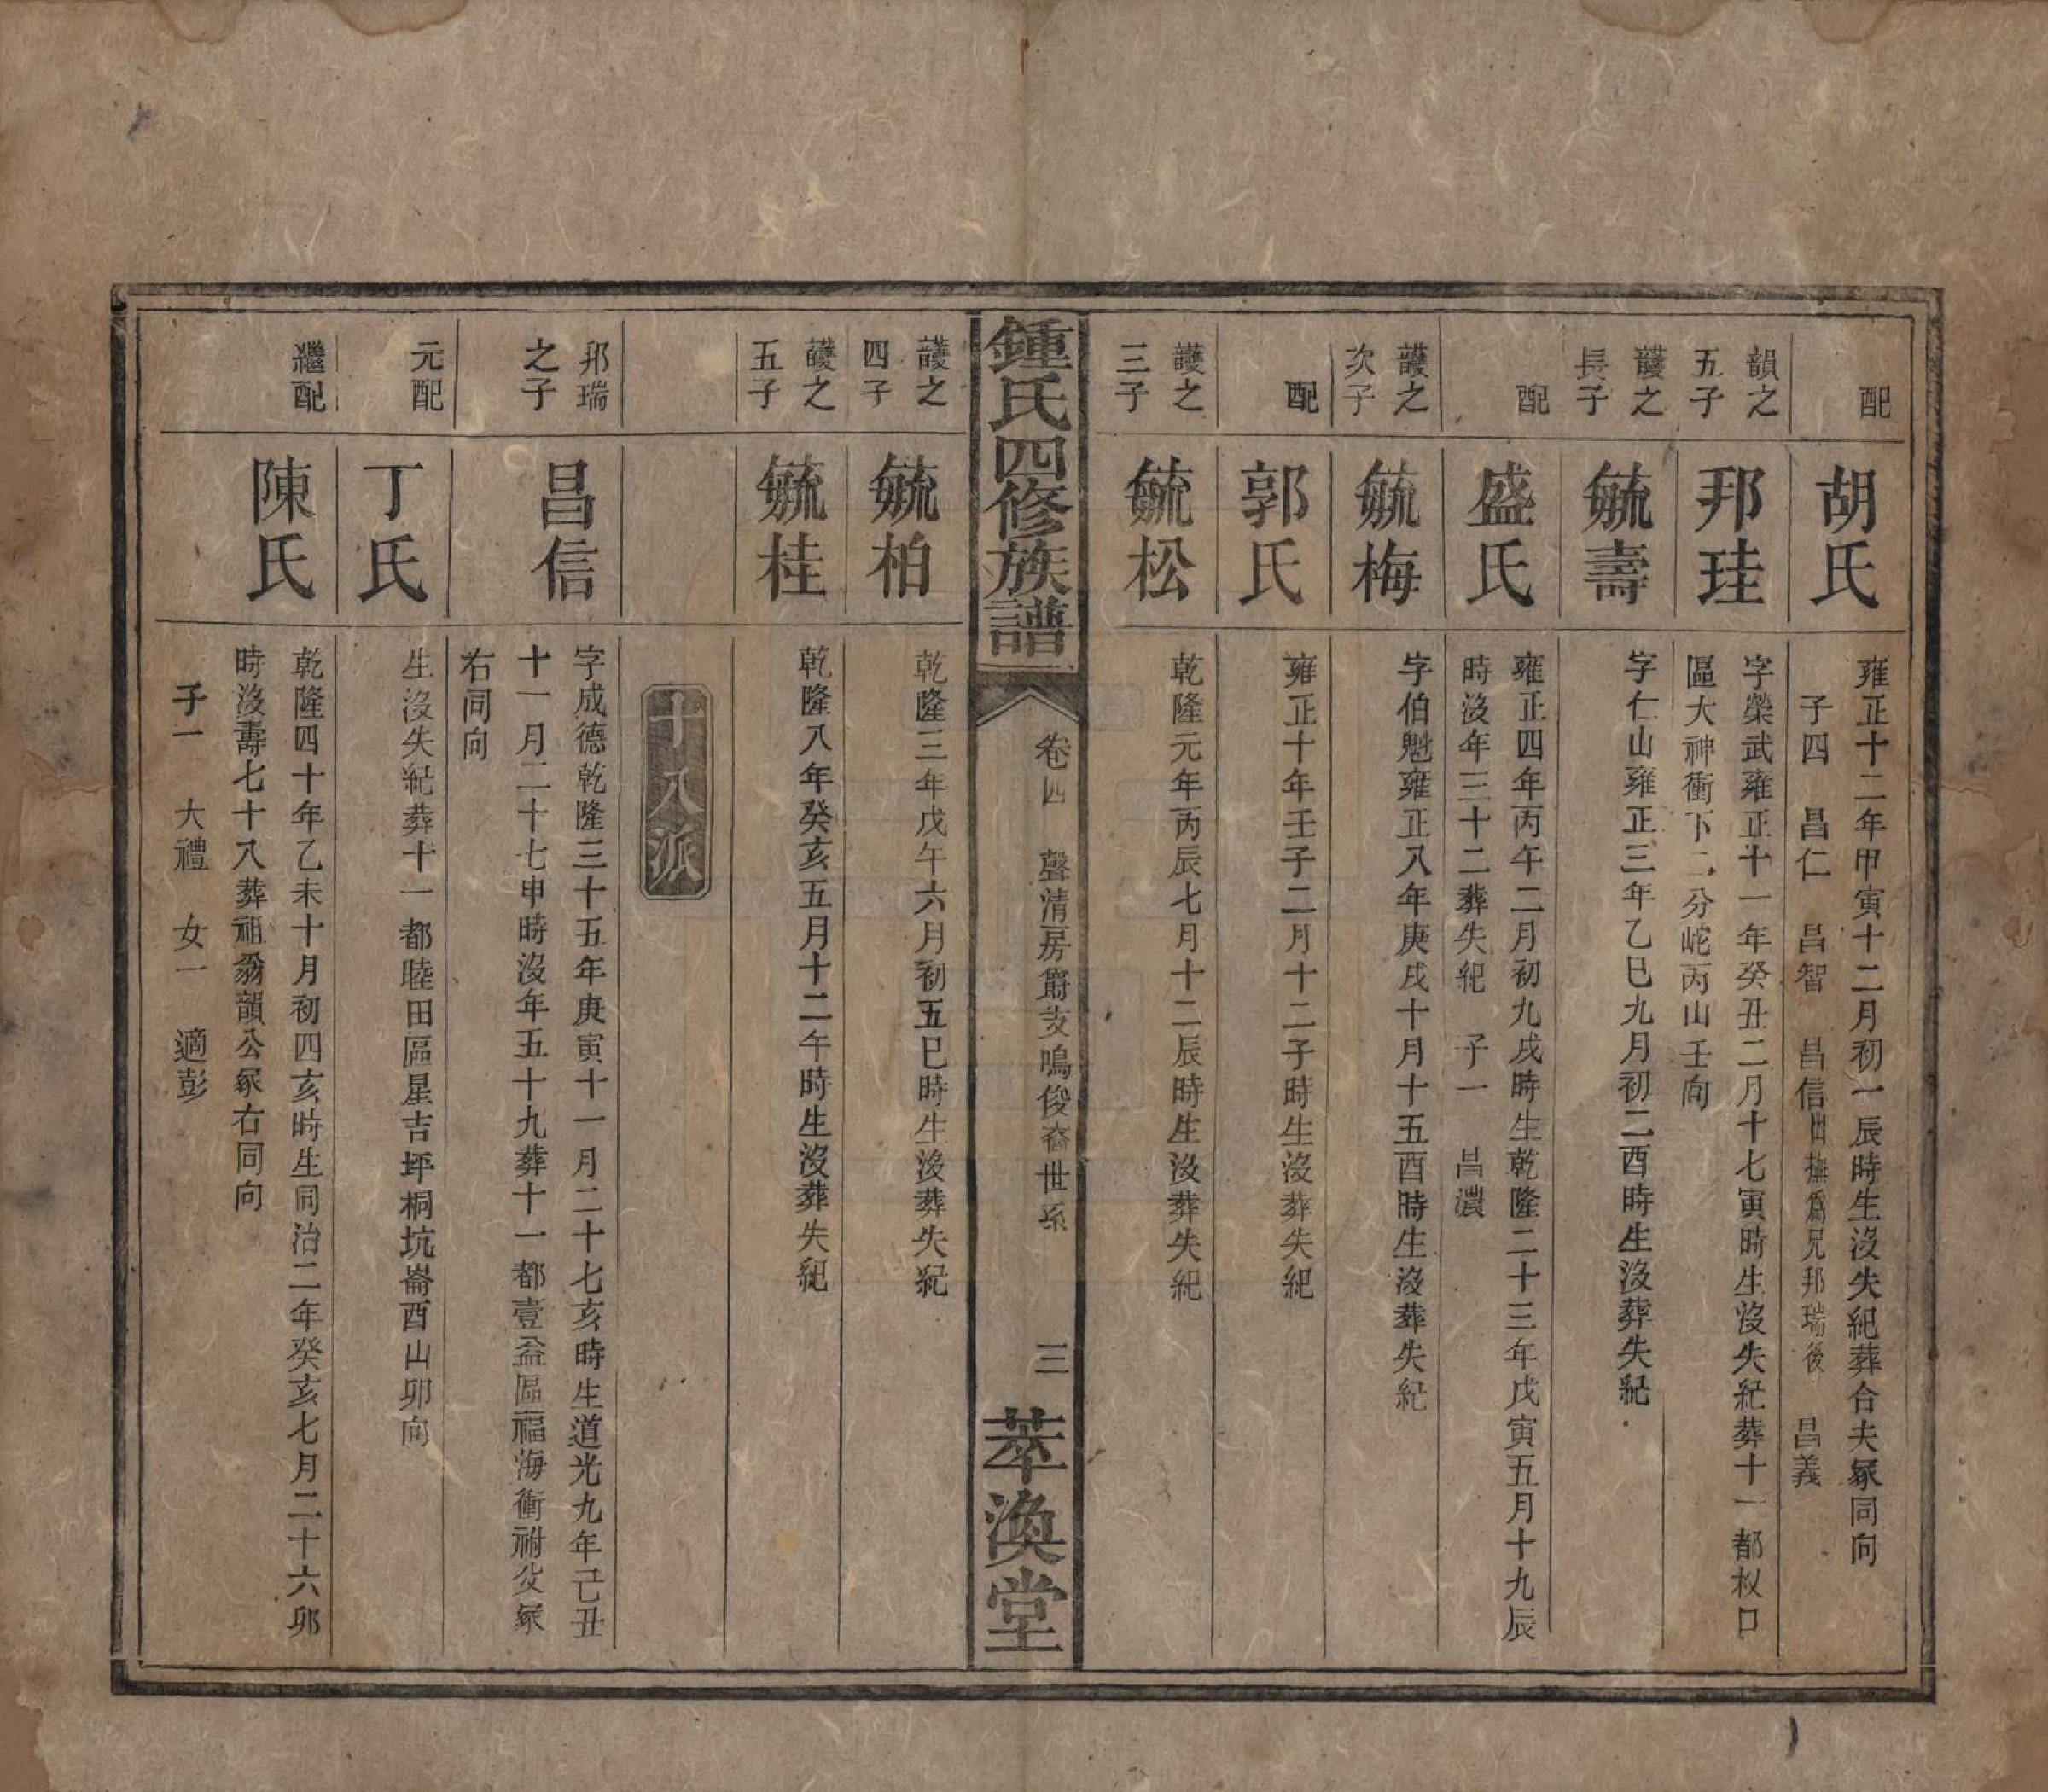 配
胡氏
雍正十二年甲寅十二月初一辰時生沒失紀葬合夫冢同向
子四　昌仁　昌智　昌信出撫為兄邦瑞後　昌義
韻之
五子
邦珪
字榮武雍正十一年癸丑二月十七寅時生沒失紀葬十一都杈口
區大神衝下二分岮丙山壬向
頀之
長子
毓壽
字仁山雍正三年乙巳九月初二酉時生沒葬失紀
配
盛氏
雍正四年丙午二月初九戌時生乾隆二十三年戊寅五月十九辰
時沒年三十二葬失紀　子一　昌濃
頀之
次子
毓梅
字伯魁雍正八年庚戌十月十五酉時生沒葬失紀
配
郭氏
雍正十年壬子二月十二子時生沒葬失紀
頀之
三子
毓松
乾隆元年丙辰七月十二辰時生沒葬失紀
鍾氏四修族譜
卷四　聲清房爵支鳴俊裔世系
三
萃渙堂
頀之
四子
毓柏
乾隆三年戊午六月初五巳時生沒葬失紀
頀之
五子
毓桂
乾隆八年癸亥五月十二午時生沒葬失紀
十八派
邦瑞
之子
昌信
字成德乾隆三十五年庚寅十一月二十七亥時生道光九年己丑
十一月二十七申時沒年五十九葬十一都壹益區福海衝祔父冢
右同向
元配
丁氏
生沒失紀葬十一都睦田區星吉坪桐坑崙酉山卯向
繼配
陳氏
乾隆四十年乙未十月初四亥時生同治二年癸亥七月二十六卯
時沒壽七十八葬祖翁韻公冢右同向
子一　大禮　女一　適彭